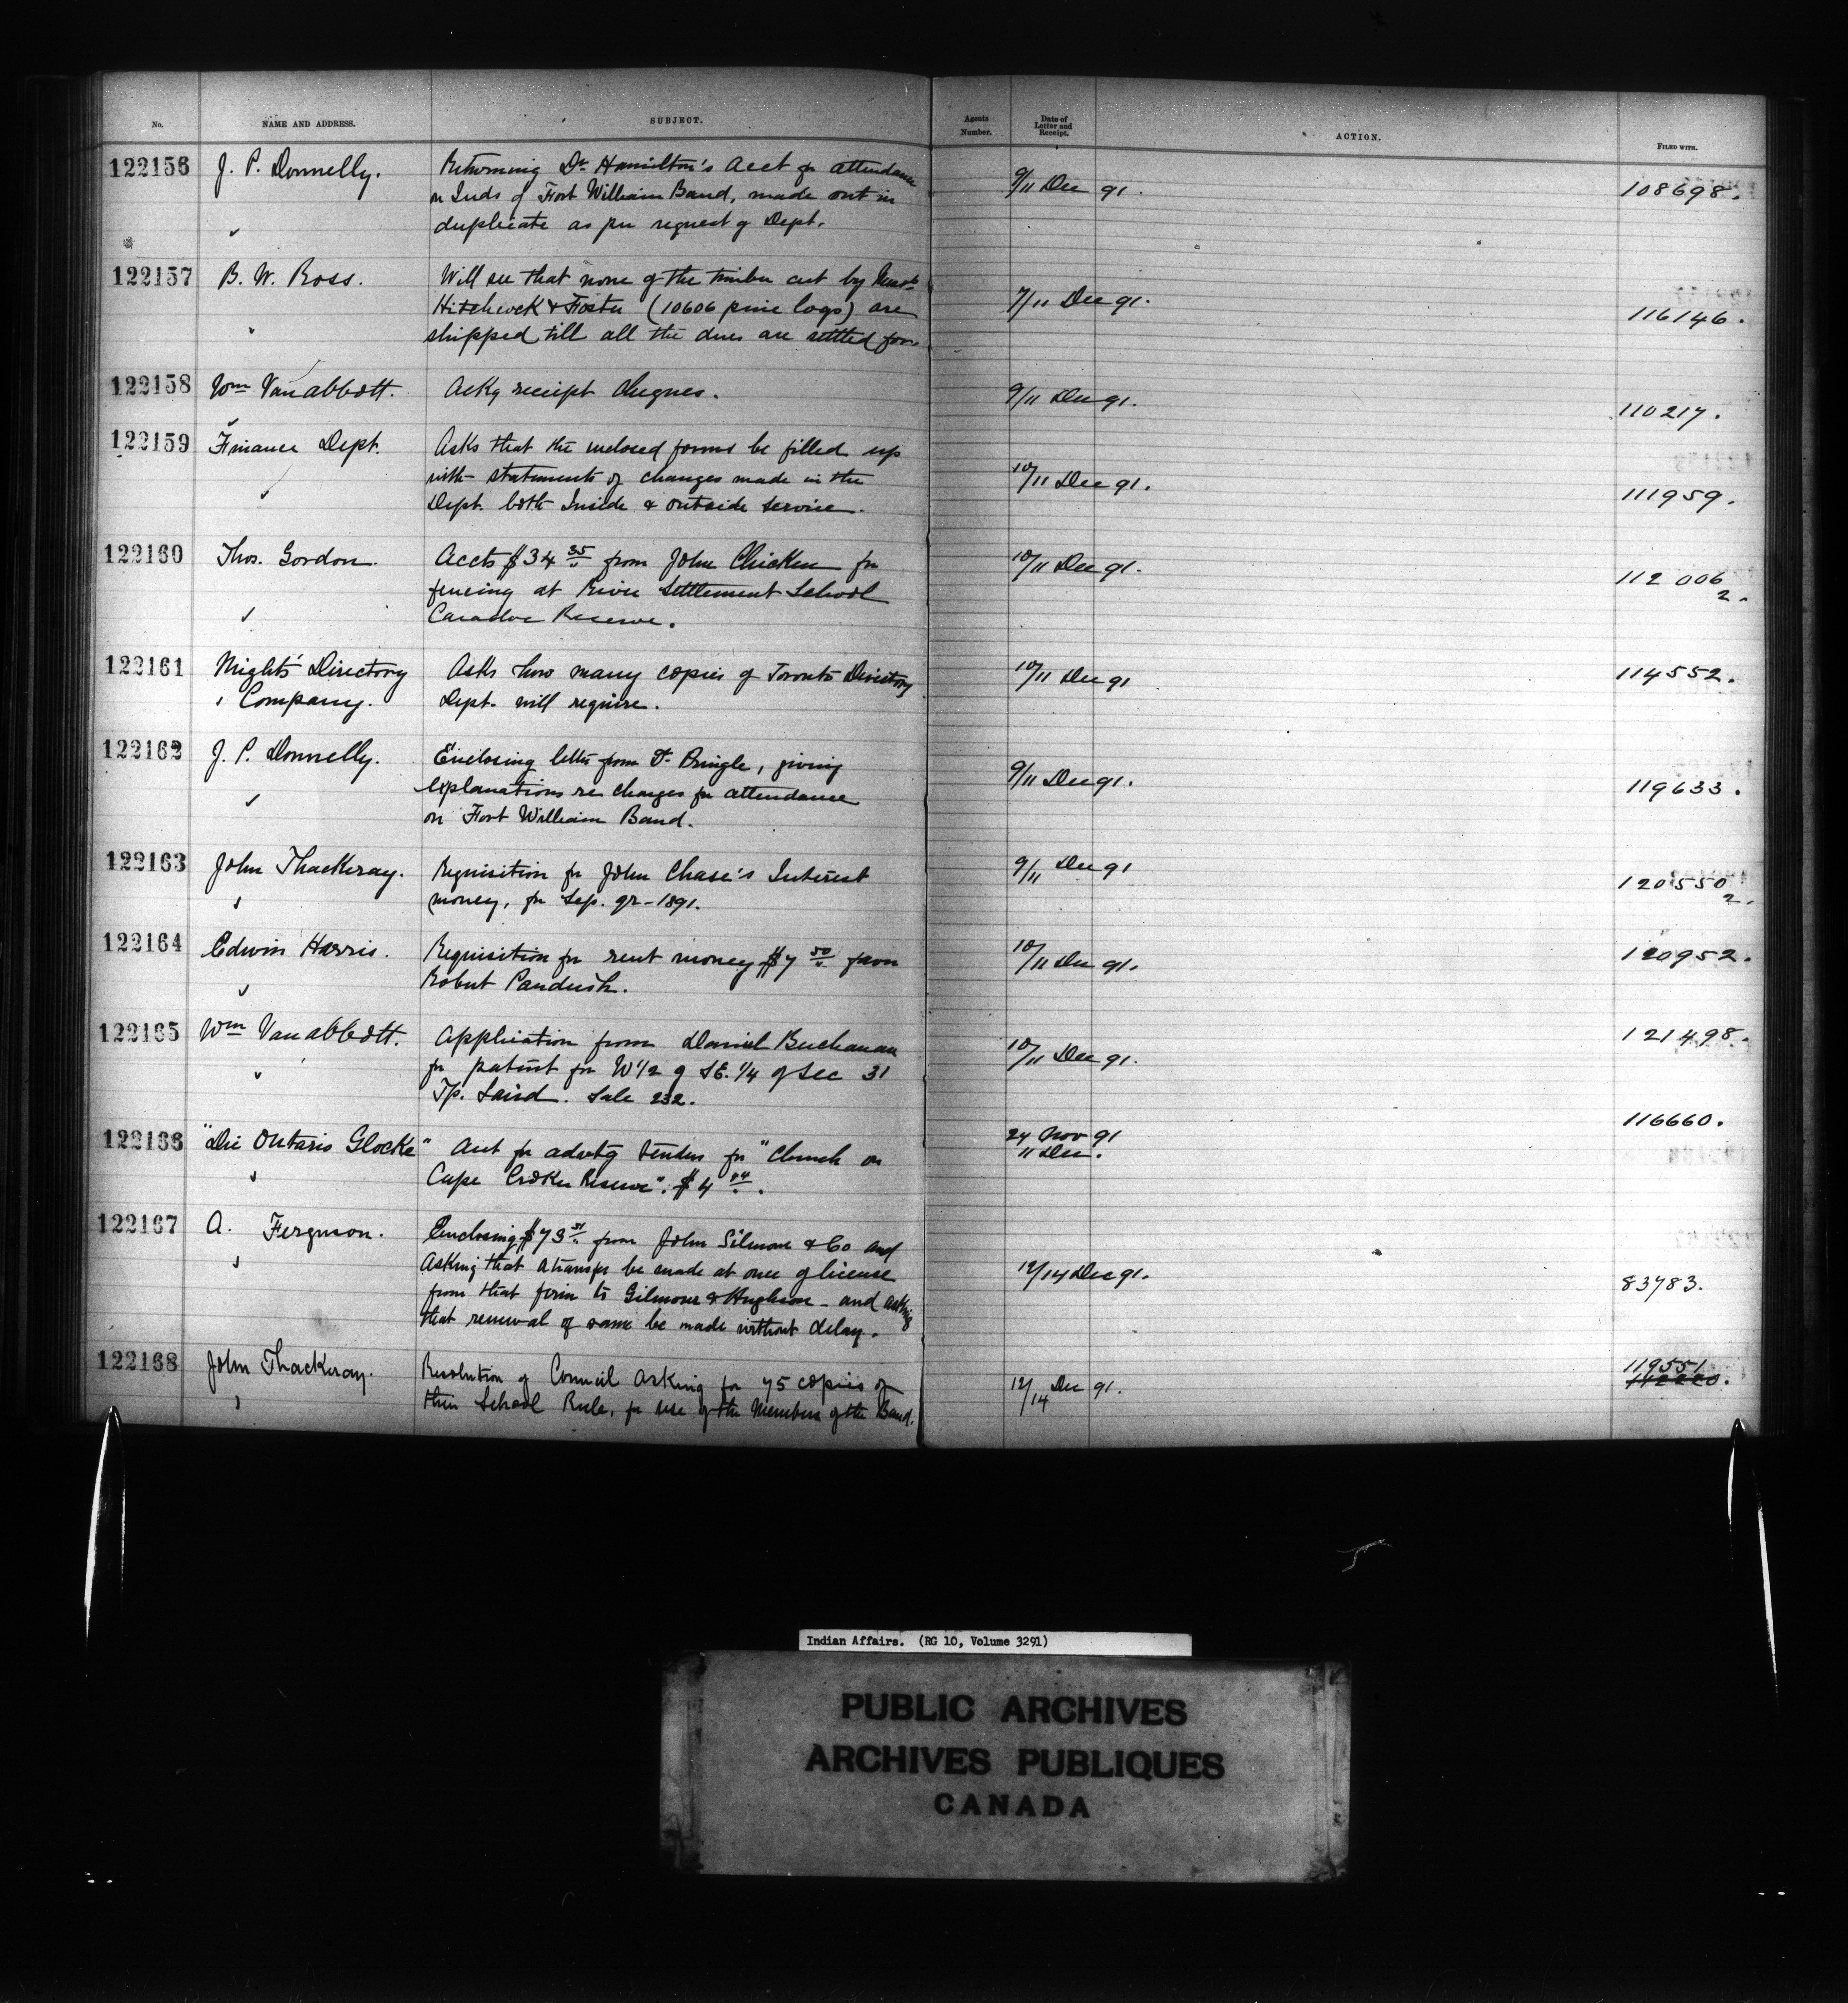 No. NAME AND ADDRESS. SUBJECT. Agents Number. Date of Letter and Receipt. ACTION. FILED WITH.
122156 J. P. Donnelly. Returning Dr. Hamilton's Acct for attendance 9/11 Dec 91. 108698.
on Inds of Fort William Band, made out in
duplicate as per request of Dept.
122157 B. W. Ross. Will see that none of the timber cut by Messrs 7/11 Dec 91. 116146.
Hitchcock & Foster (10606 pine logs) are
shipped till all the dues are settled for.
122158 Wm Van Abbott. Ackg receipt cheques. 9/11 Dec 91. 110217.
122159 Finance Dept. Asks that the enclosed forms be filled up 10/11 Dec 91. 111959.
with statements of changes made in the
Dept. both Inside & outside service.
122160 Thos. Gordon. Accts $34 35 from John Chicken for 10/11 Dec 91. 112006
fencing at River Settlement School 2.
Caradoc Reserve.
122161 Might's Directory Asks how many copies of Toronto Directory 10/11 Dec 91 114552.
Company. Dept. will require.
122162 J. P. Donnelly. Enclosing letter from Dr Pringle, giving 9/11 Dec 91. 119633.
explanations re charges for attendance
on Fort William Band.
122163 John Thackeray. Requisition for John Chase's Interest 9/11 Dec 91 120550
money, for Sep. qr-1891. 2.
122164 Edwin Harris. Requisition for rent money $7 50 favor 10/11 Dec 91. 120952.
Robert Paudush.
122165 Wm Van Abbott. Application from Daniel Buchanan 10/11 Dec 91. 121498.
for patent for W 1/2 of SE. 1/4 of Sec 31
Tp. Laird. Sale 232.
122166 "Die Ontario Glocke" Acct for advertg tenders for "Church on 24 Nov 91 116660.
Cape Croker Reserve". $4 04. 11 Dec.
122167 A. Ferguson. Enclosing $73 from John Gilmour & Co and 12/14 Dec 91. 83783.
asking that a transfer be made at once of license
from that firm to Gilmour & Hughson - and asking
that renewal of same be made without delay.
122168 John Thackeray. Resolution of Council asking for 75 copies of 12/14 Dec 91. 119551
their School Rule, for use of the Members of the Band.
Indian Affairs. (RG 10, Volume 3291)
PUBLIC ARCHIVES
ARCHIVES PUBLIQUES
CANADA